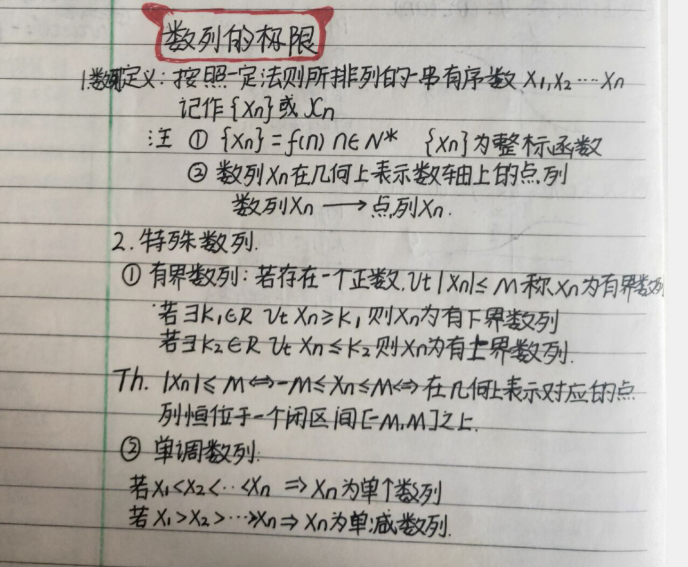 数列的极限
1.数列定义：按照一定法则所排列的一串有序数 X₁,X₂……Xn
记作{Xn}或Xn
注 ① {Xn}=f(n) n∈N* {Xn}为整标函数
② 数列Xn在几何上表示数轴上的点列
数列Xn ⟶ 点列Xn.
2.特殊数列.
① 有界数列：若存在一个正数,Ut |Xn|≤M 称Xn为有界数列
若∃K₁∈R Ut Xn≥K₁则Xn为有下界数列
若∃K₂∈R Ut Xn≤K₂则Xn为有上界数列.
Th. |Xn|≤M⟺-M≤Xn≤M⟺在几何上表示对应的点
列恒位于一个闭区间[-M,M]之上.
② 单调数列.
若X₁<X₂<…<Xn ⇒ Xn为单个数列
若X₁>X₂>…>Xn⇒ Xn为单减数列.